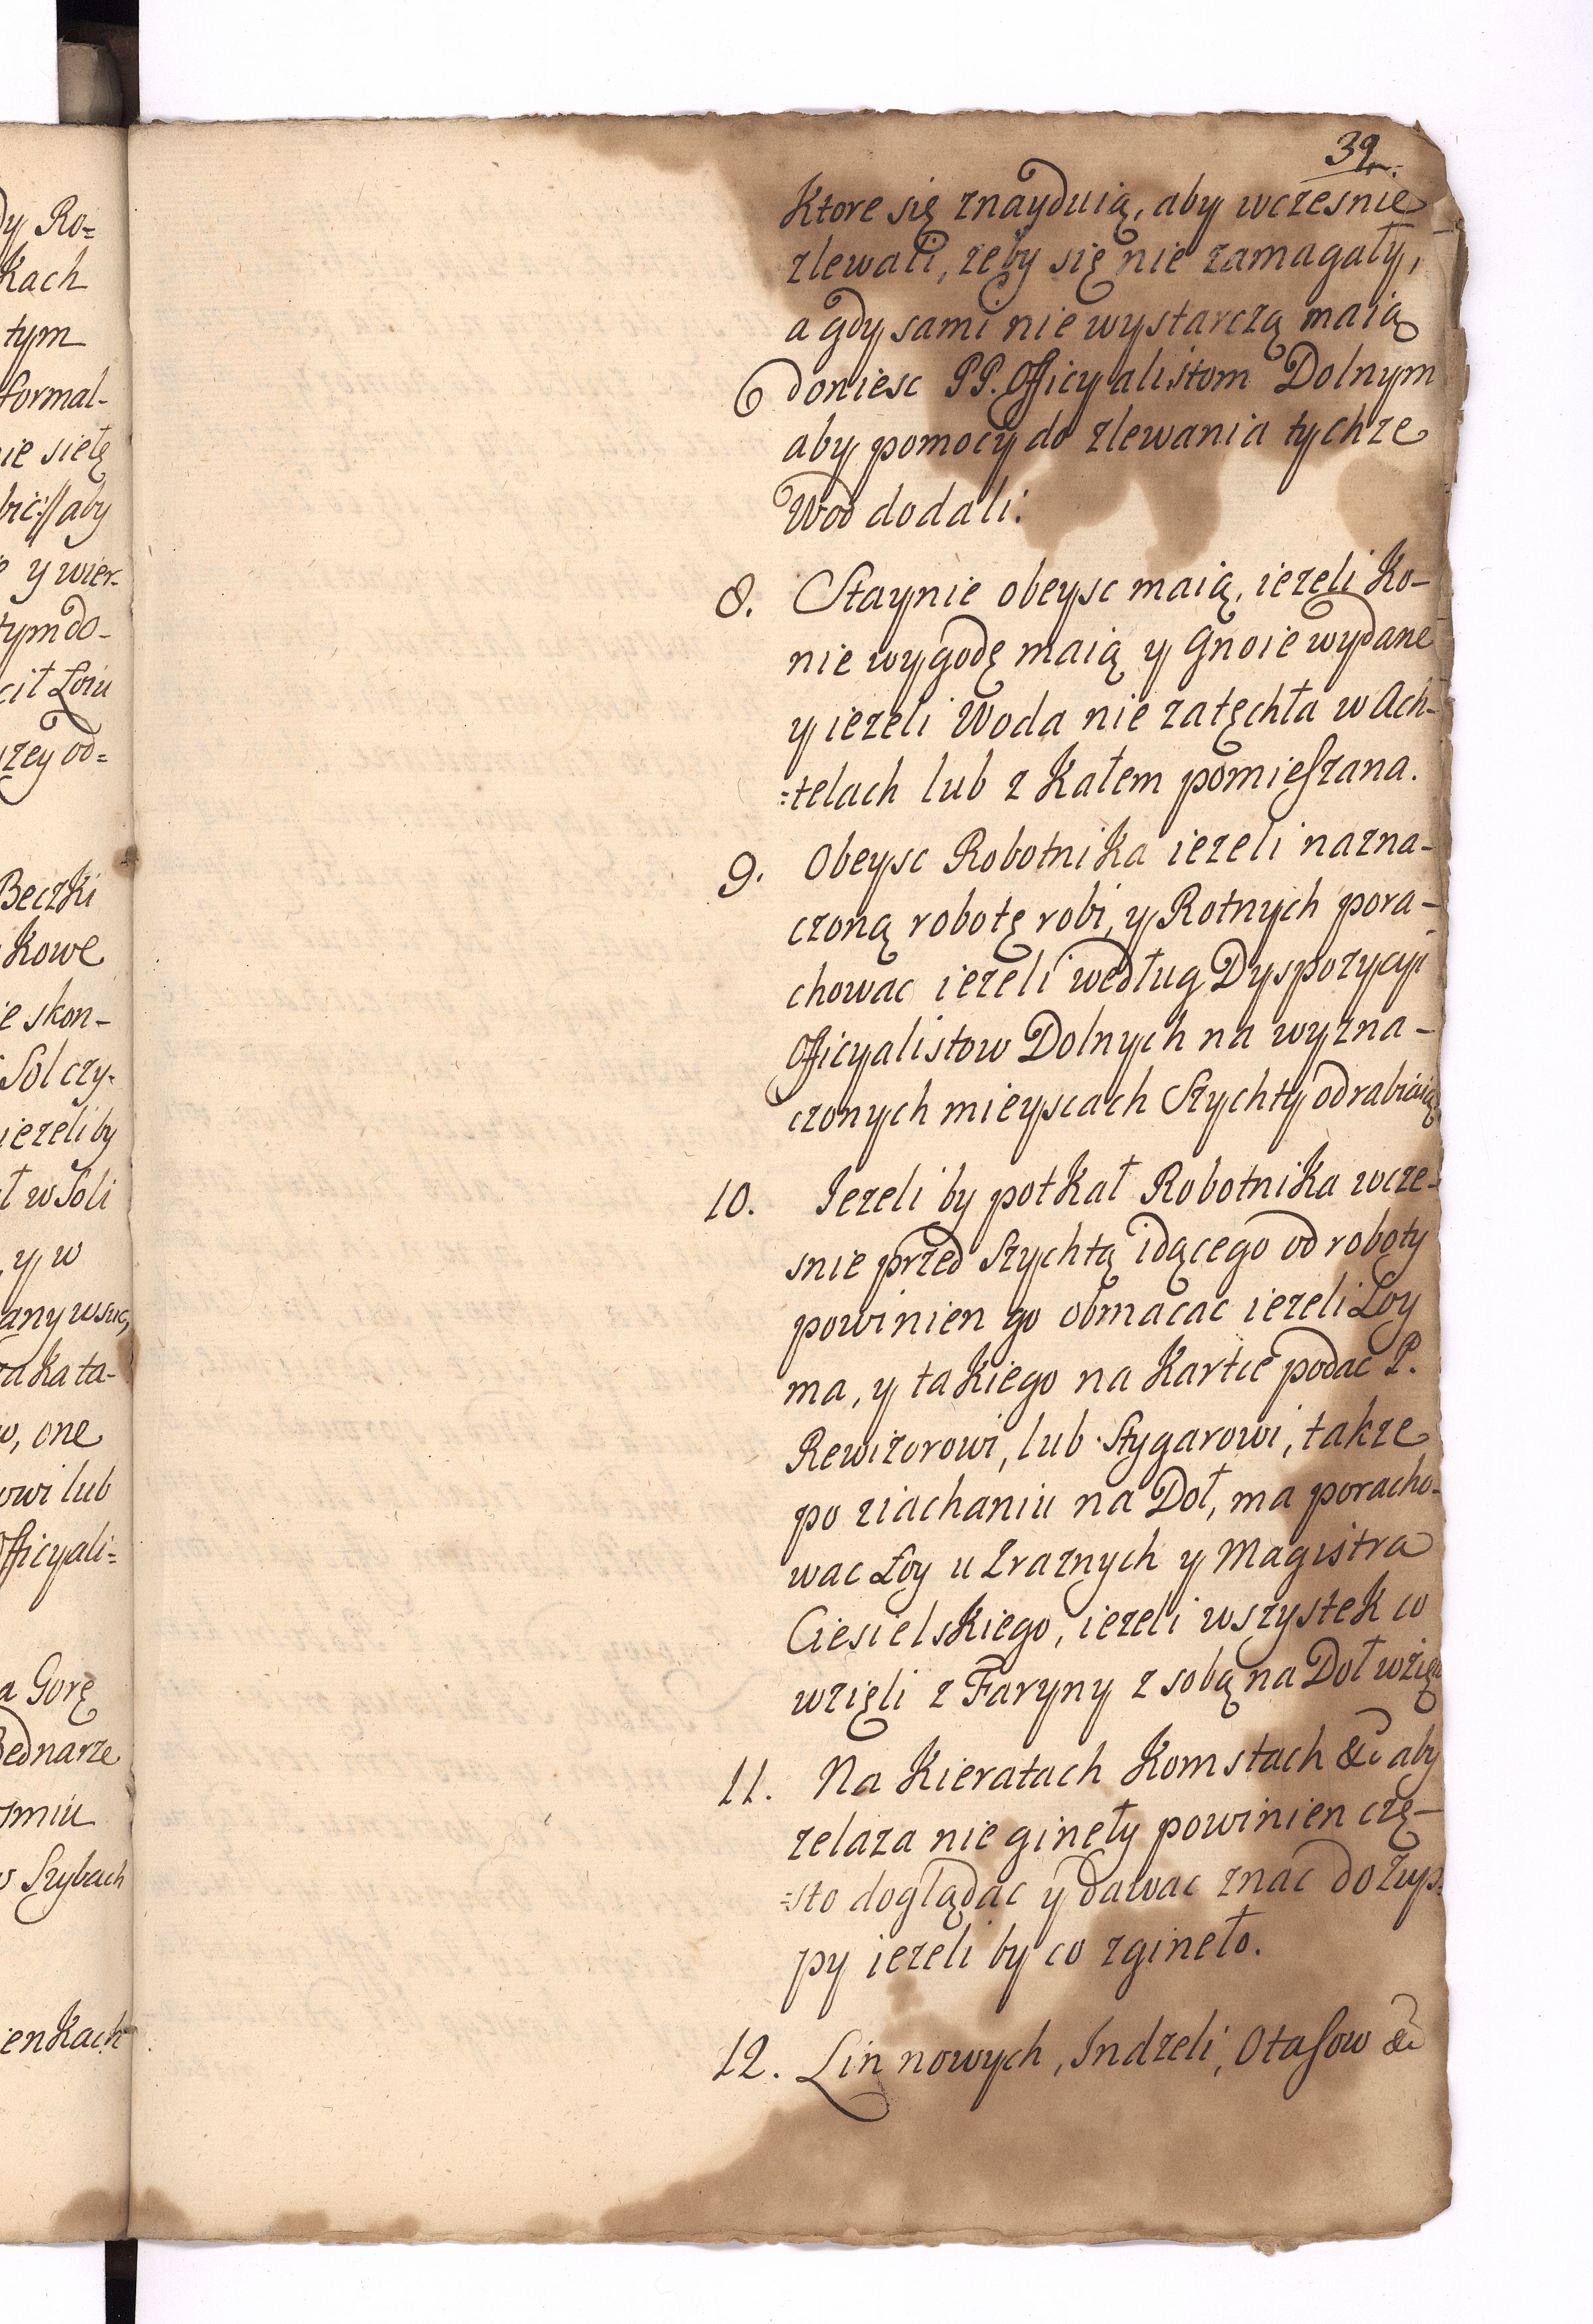 dy Ro=
kach
tym
formal-
nie siełę
bic:// aby
y wier-
tym do-
cił Łoiu
rzey od=
Beczki
kowe
ie skon-
Sol czy-
iezeli by
ł w Soli
y w
any wsuc,
za kata-
w, one
owi lub
Officyali=
a Gorę
Bednarze
omiu
w Szybach
ienkach
39.
Ktore się znayduią, aby wczesnie
zlewali, zeby się nie zamagały,
a gdy sami nie wystarczą maią
doniesc PP. Officyalistom Dolnym
aby pomocy do zlewania tychze
Wod dodali.
8. Staynie obeysc maią, iezeli Ko-
nie wygodę maią y Gnoie wydane
y iezeli Woda nie zatęchła w Ach-
=telach lub z Kałem pomieszana.
9. Obeysc Robotnika iezeli nazna-
czoną robotę robi, y Rotnych pora-
chowac iezeli według Dyspozycyi
Officyalistow Dolnych na wyzna-
czonych mieyscach Szychty odrabiaią
10. Iezeli by potkał Robotnika wcze-
snie przed Szychtą idącego od roboty
powinien go obmacac iezeli Łoy
ma, y takiego na Kartce podac P.
Rewizorowi, lub Stygarowi, takze
po ziachaniu na Doł, ma poracho-
wac Łoy u Zraznych y Magistra
Ciesielskiego, iezeli wszystek co
wzięli z Faryny z sobą na Doł wzię
11. Na Kieratach Komstach &c aby
zelaza nie gineły powinien czę-
=sto doglądac y dawac znac do Zup=
py iezeli by co zgineło.
12. Lin nowych, Indzeli, Otasow &c